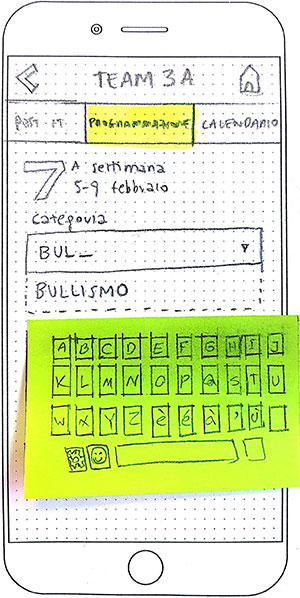 TEAM 3A
POST-IT PROGRAMMAZIONE CALENDARIO
7A settimana
5-9 febbraio
categoria
BUL_
BULLISMO
A B C D E F G H I J
K L M N O P Q S T U
W X Y Z è é à ' ù